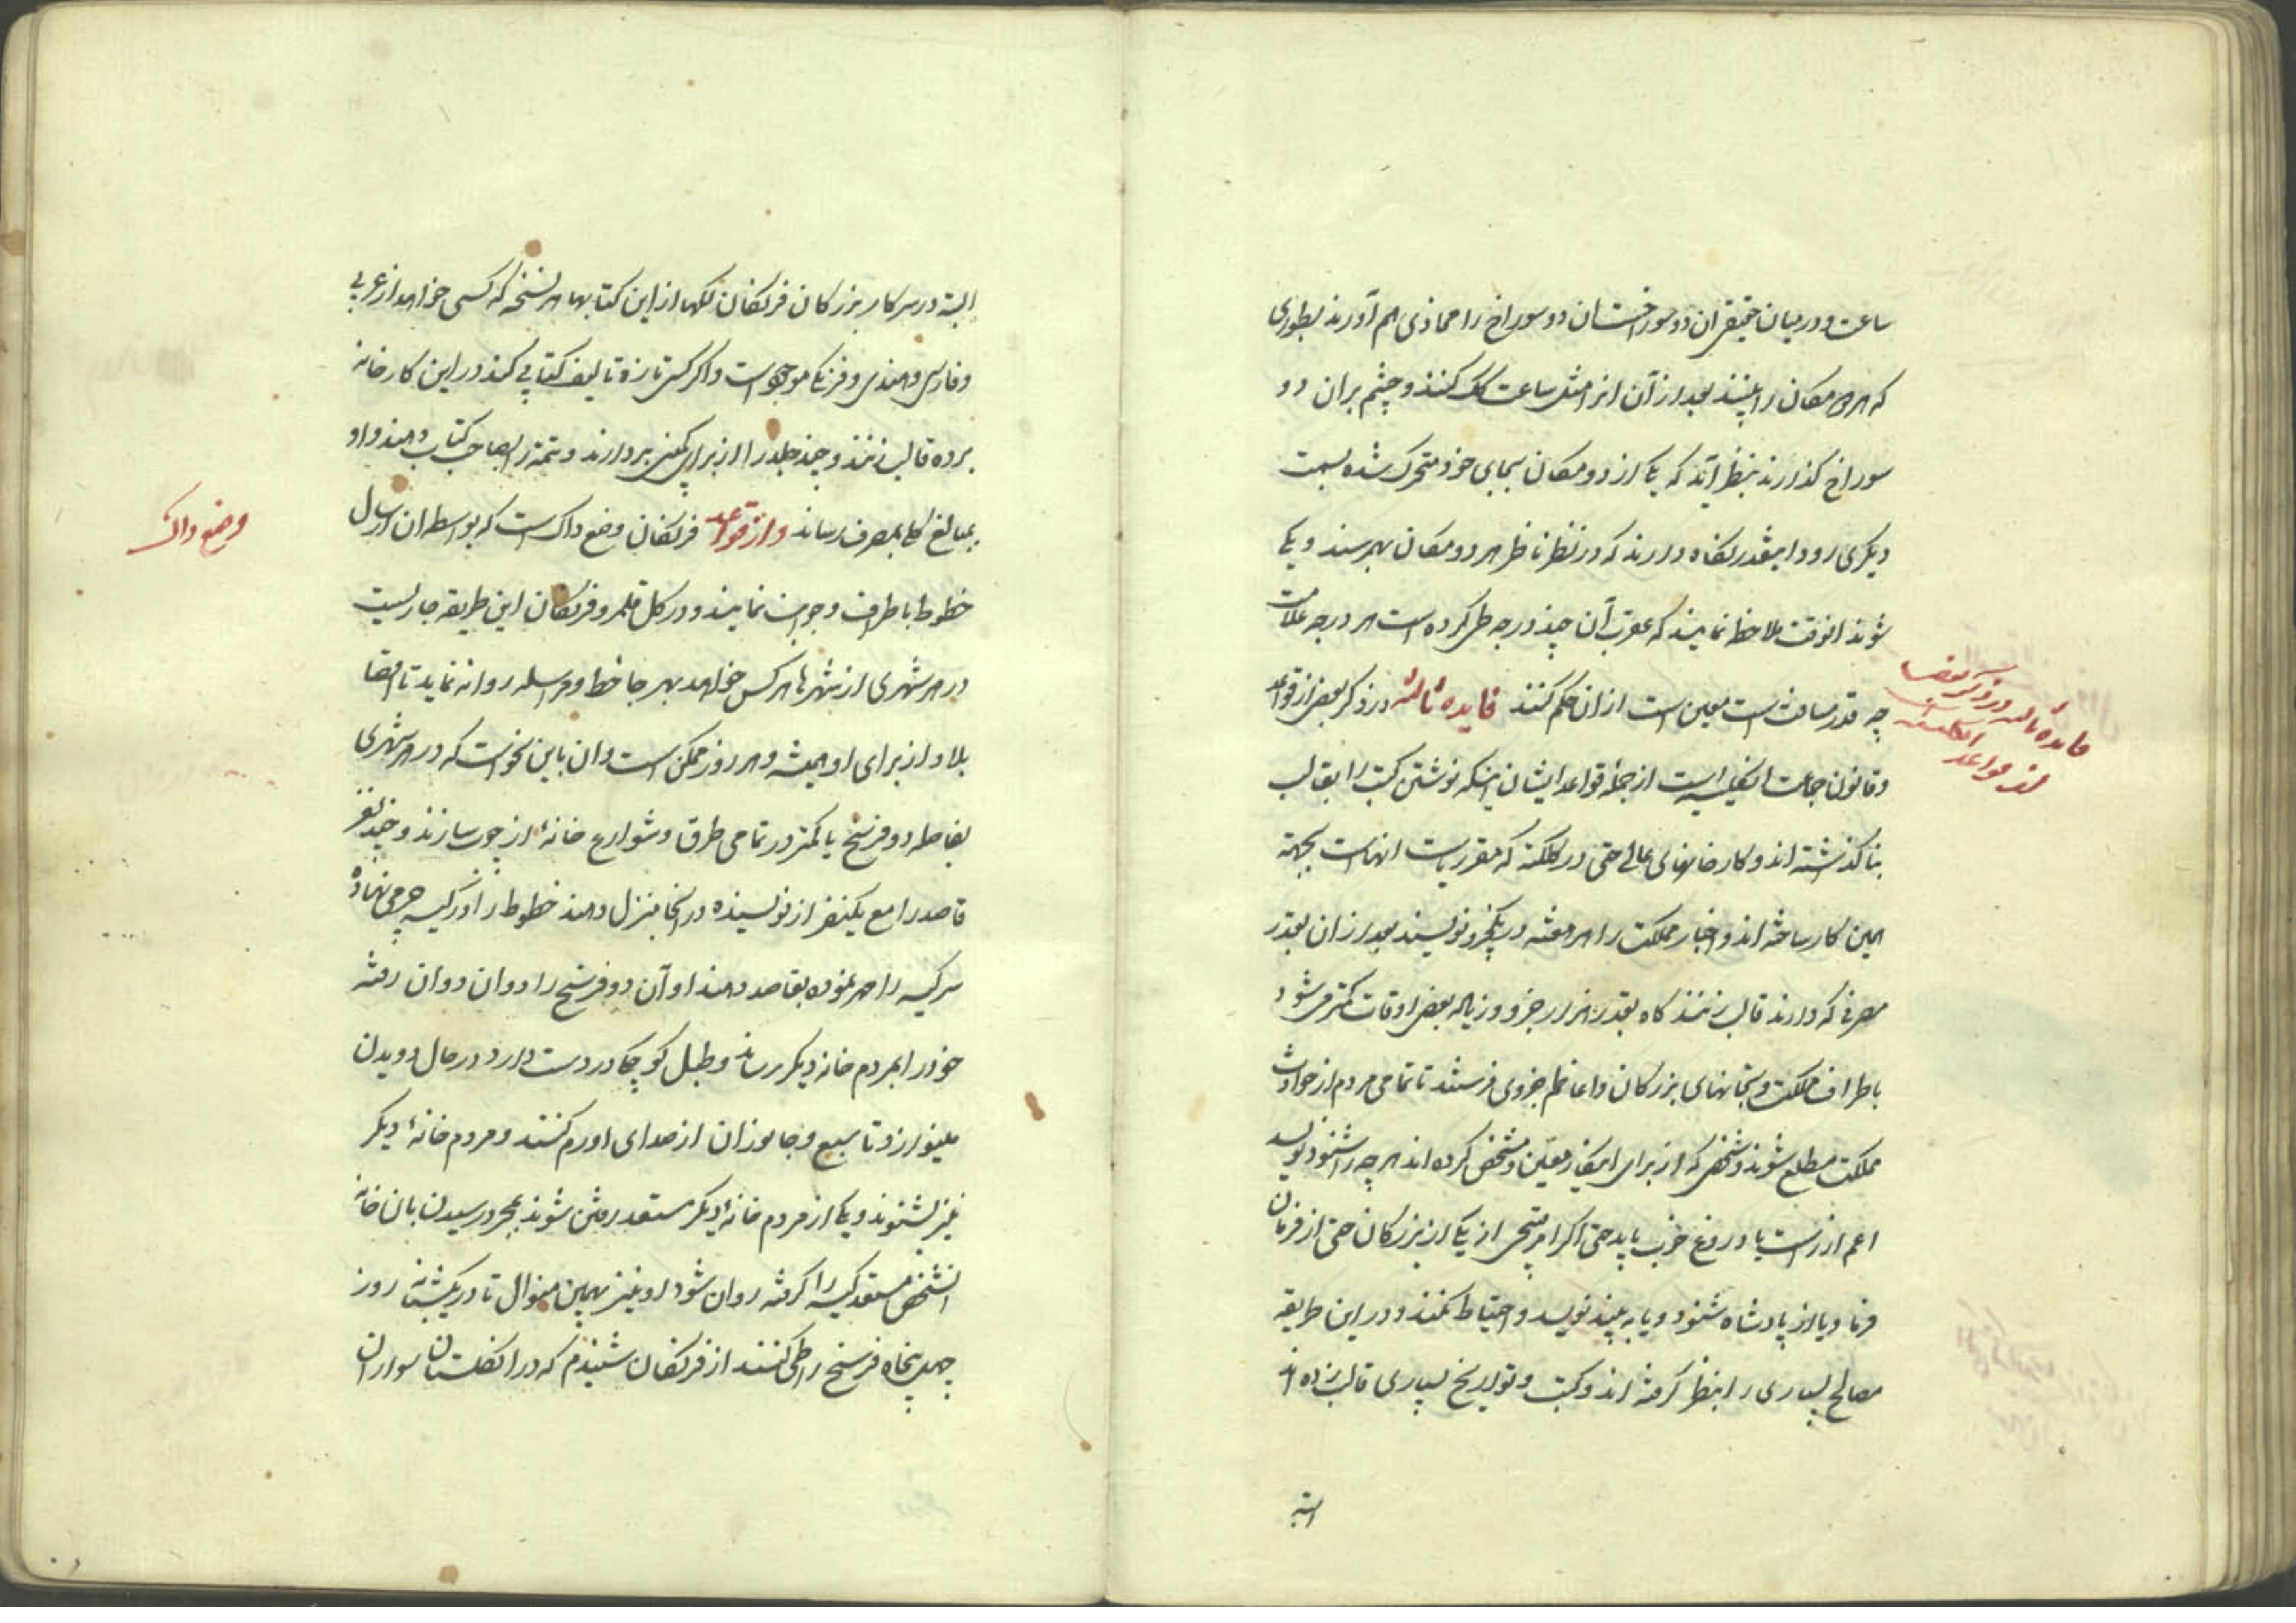 ساعت و در میان حقیقی ان دو سوراخست ان دو سوراخ را محاذی هم آورند بطوری
که هر دو مکان را به بینند بعد از آن انرا مثل ساعت کک کنند و چشم بران دو
سوراخ گذارند بنظر آید که یکی از دو مکان بجای خود متحرک شده بسمت
دیگری رود اینقدر نگاه دارند که در نظر ناظر هر دو مکان بهم رسند و یکی
شوند انوقت ملاحظه نمایند که عقرب آن چند درجه طی کرده است هر درجه علامت
چه قدر مسافت است معین است ازان حکم کنند فایده ثالثه در ذکر بعضی از قواعد
و قانون جماعت انگلیسیه است از جمله قواعد ایشان اینکه نوشتن کتب را بقالب
بنا گذاشته اند و کارخانهای عالی حتی در کلکته که مقر ریاست انهاست بجهته
همین کار ساخته اند و اخبار مملکت را هر هفته در یکجزو نویسند بعد ازان بقدر
مصرفی که دارند قالب زنند گاه بقدر هزار جزو و زیاده بعض اوقات کمتر می شود
باطراف مملکت و بخانهای بزرگان و اعاظم جزوی فرستند تا تمامی مردم از حوادث
مملکت مطلع شوند و شخصی که از برای اینکار معین و مشخص کرده اند هر چه را شنود نویسد
اعم از راست یا دروغ خوب یا بد حتی اگر امر قبیحی از یکی از بزرگان حتی از فرمان
فرما و یا از پادشاه شنود و یا به بیند نویسد و احتیاط نکنند و در این طریقه
مصالح بسیاری را بنظر گرفته اند و کتب و تواریخ بسیاری قالب زده اند
البته
فایده ثالثه در ذکر بعضی
از قواعد انگلیسیه
البته در سرکار بزرگان فرنگان لکها از این کتابها هر نسخه که کسی خواهد از عربی
و فارسی و هندی و فرنگی موجود است و اگر کسی تازه تالیف کتابی کند در این کارخانه
برده قالب زنند و چند جلد را از برای کمپنی بردارند و تتمه را بصاحب کتاب دهند و او
بمبالغ کلی بمصرف رساند و از قواعد فرنگان وضع داک است که بواسطه ان ارسال
خطوط باطراف و جوانب نمایند و در کل قلمرو فرنگان این طریقه جاریست
در هر شهری از شهرها هر کس خواهد بهر جا خط و مراسله روانه نماید تا اقصا
بلاد از برای او همیشه و هر روز ممکن است و ان باین نحو است که در هر شهری
بفاصله دو فرسخ یا کمتر در تمامی طرق و شوارع خانهٔ از چوب سازند و چند نفر
قاصد را مع یکنفر از نویسنده در انجا منزل دهند خطوط را در کیسه چرمی نهاده
سر کیسه را مهر نموده بقاصد دهند او آن دو فرسخ را دوان دوان رفته
خود را بمردم خانه دیگر رساند و طبل کوچکی در دست دارد در حال دویدن
مینوازد تا سبع و جانوران از صدای او رم کنند و مردم خانهٔ دیگر
نیز بشنوند و یکی از مردم خانهٔ دیگر مستعد رفتن شوند بمجرد رسیدن بان خانه
انشخص مستعد کیسه را گرفته روان شود او نیز بهمین منوال تا در یکشبانه روز
چهل پنجاه فرسخ راه طی کنند از فرنگان شنیدم که در انگلستان سواران
وضع داک